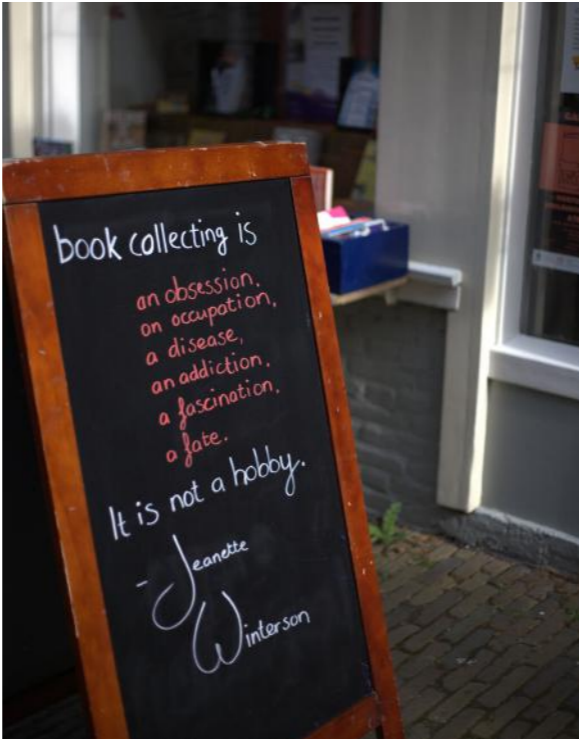 book collecting is
an obsession,
an occupation,
a disease,
an addiction,
a fascination,
a fate.
It is not a hobby.
- Jeanette
Winterson